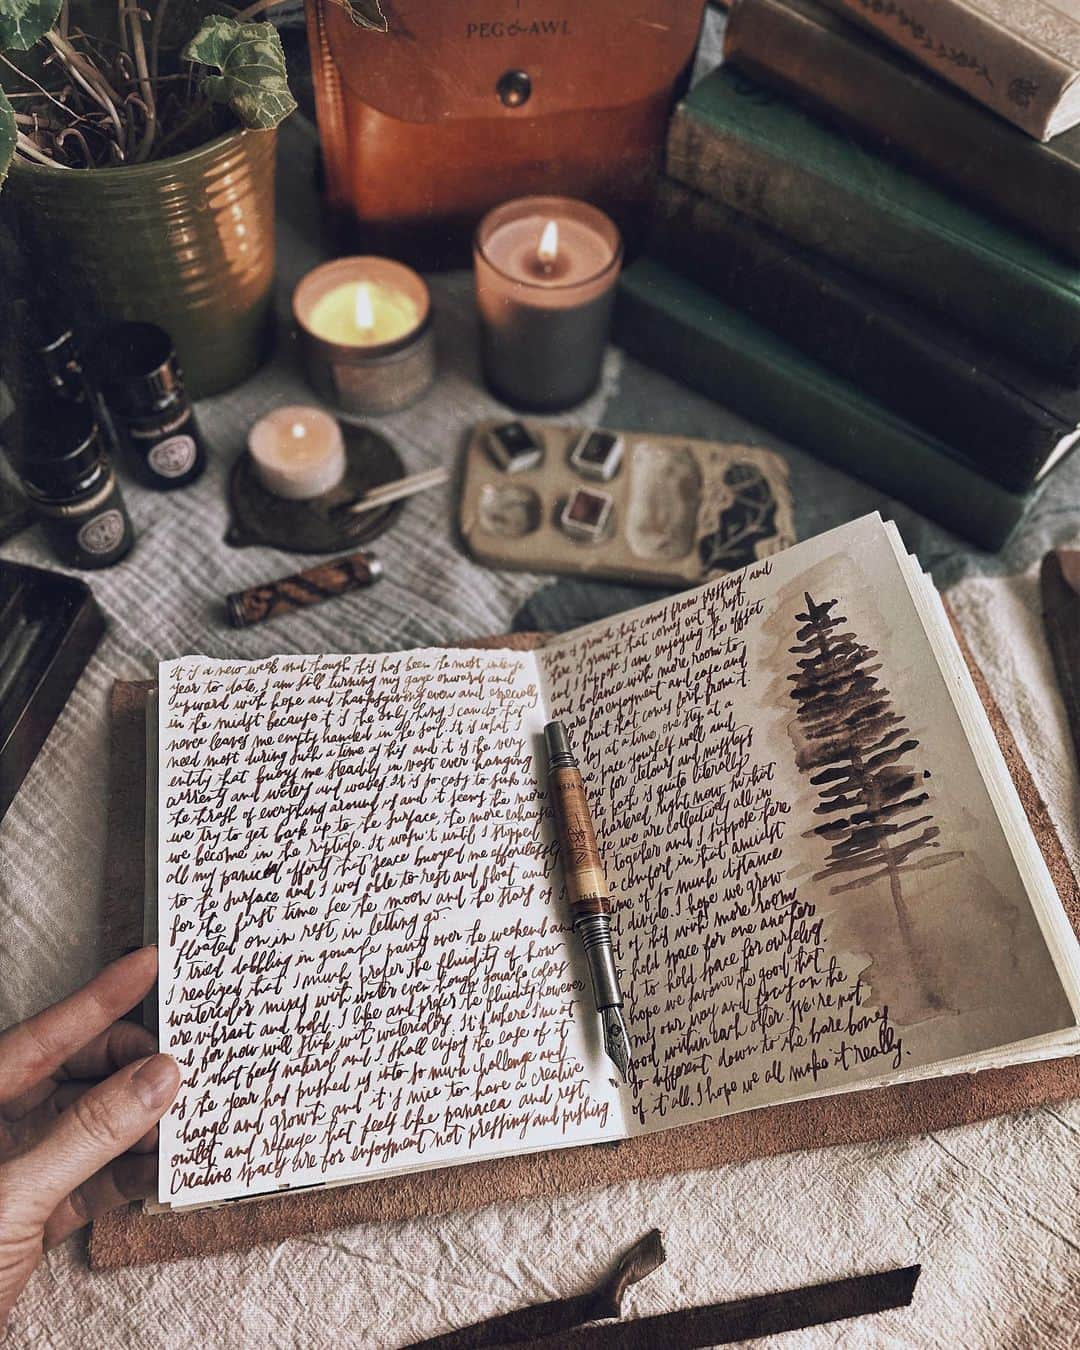 PEG & AWL
It is a new week and though this has been the most intense
year to date, I am still turning my gaze onward and
upward with hope and thanksgiving even and especially
in the midst because it is the only thing I can do that
never leaves me empty handed in the soul. It is what I
need most during such a time as this and it is the very
entity that buoys me steadily in vast ever hanging
currents and waters and waves. It is so easy to sink in
the thrash of everything around us and it seems the more
we try to get back up to the surface, the more exhausted
we become in the riptide. It wasn't until I stopped
all my panicked efforts that peace buoyed me effortlessly
to the surface and I was able to rest and float and
for the first time see the moon and the stars as I
floated on in rest, in letting go.
I tried dabbling in gouache paint over the weekend and
I realized that I much prefer the fluidity of how
watercolor mixes with water even though gouache colors
are vibrant and bold. I like and prefer the fluidity however
and for now will stick with watercolor. It's where I'm at
and what feels natural and I shall enjoy the ease of it
as the year has pushed us into so much challenge and
change and growth and it's nice to have a creative
outlet and refuge that feels like panacea and rest.
Creative spaces are for enjoyment not pressing and pushing.
There is growth that comes from pressing and
there is growth that comes out of rest
and I suppose I am enjoying the offset
and balance with more room to
care for enjoyment and ease and
fruit that comes forth from it.
by at a time, one step at a
pace yourself well and
for detours and missteps
the path is quite literally
uncharted right now in what
we are collectively all in
together and I suppose there
a comfort in that amidst
time of so much distance
and divide. I hope we grow
out of this with more room
to hold space for one another
and to hold space for ourselves.
I hope we favour the good that
comes our way and focus on the
good within each other. We're not
so different down to the bare bones
of it all. I hope we all make it really.